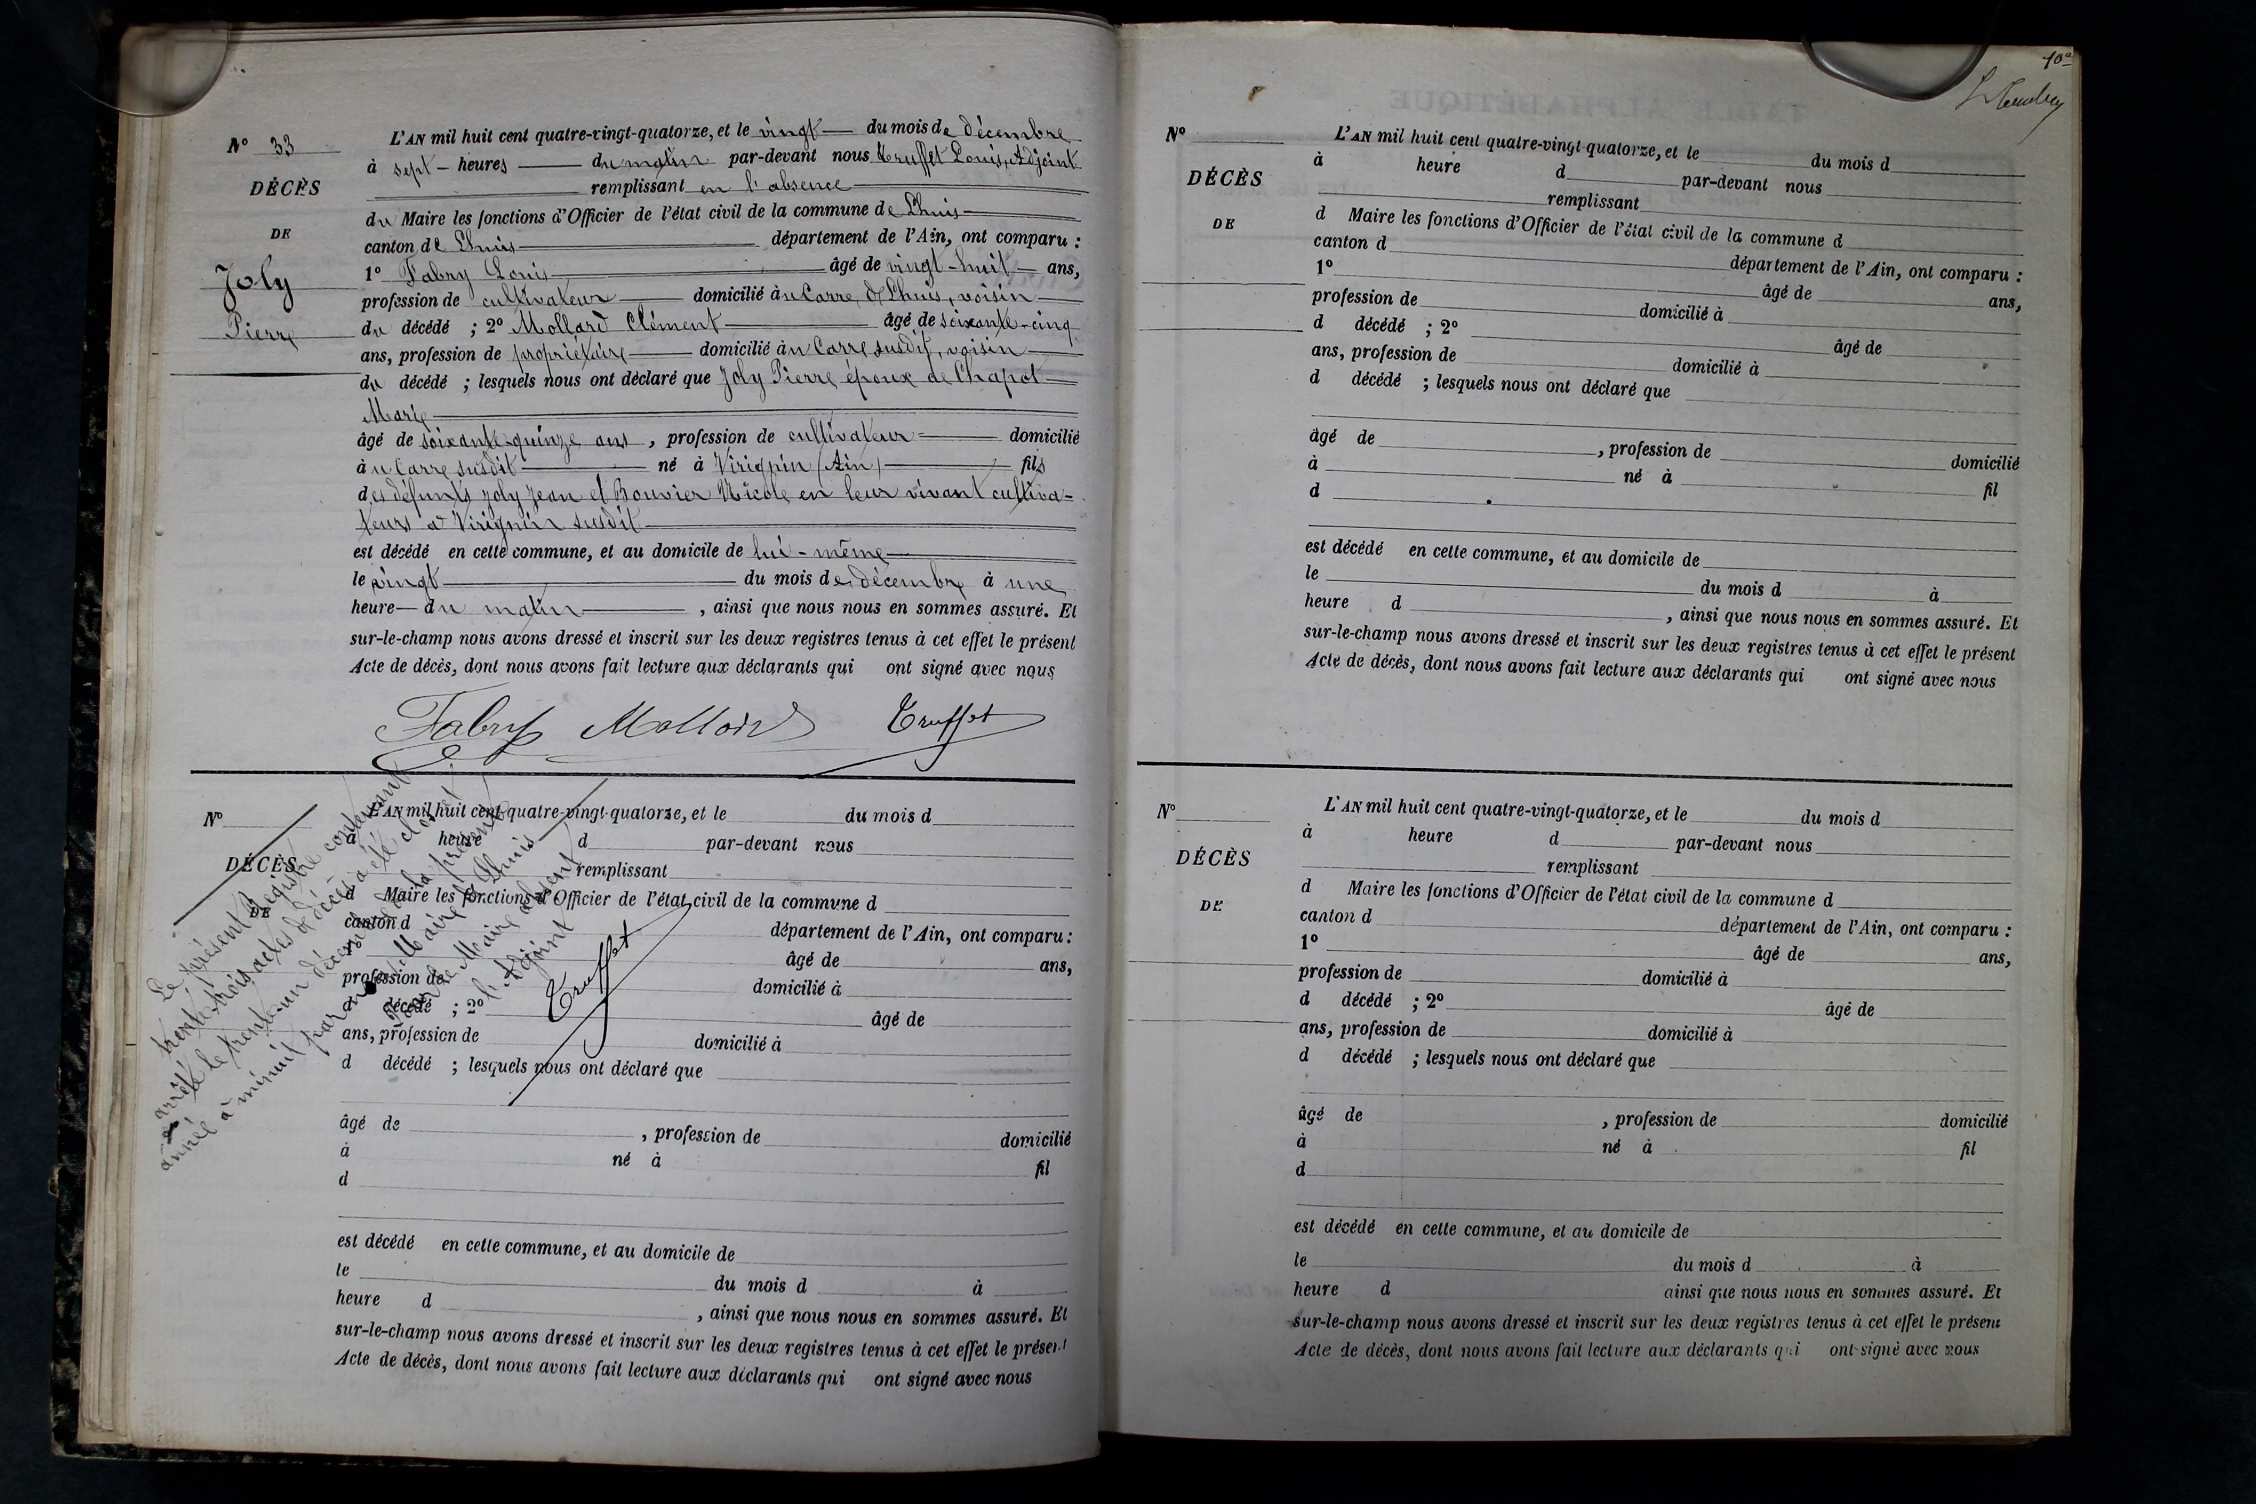 N° 33
DÉCÈS
DE
Joly
Pierre
L'AN mil huit cent quatre-vingt-quatorze, et le vingt du mois de décembre
à sept heures du matin par-devant nous Truffet Louis, Adjoint
remplissant en l'absence
du Maire les fonctions d'Officier de l'état civil de la commune de Lhuis
canton de Lhuis département de l'Ain, ont comparu :
1° Fabry Louis âgé de vingt-huit ans,
profession de cultivateur domicilié au Carre de Lhuis, voisin
du décédé ; 2° Mollard Clément âgé de soixante-cinq
ans, profession de propriétaire domicilié au Carre susdit, voisin
du décédé ; lesquels nous ont déclaré que Joly Pierre époux de Chapot
Marie
âgé de soixante-quinze ans, profession de cultivateur domicilié
au Carre susdit né à Virignin (Ain) fils
des défunts Joly Jean et Bouvier Nicole en leur vivant cultiva-
teurs à Virignin susdit
est décédé en cette commune, et au domicile de lui-même
le vingt du mois de décembre à une
heure du matin, ainsi que nous nous en sommes assuré. Et
sur-le-champ nous avons dressé et inscrit sur les deux registres tenus à cet effet le présent
Acte de décès, dont nous avons fait lecture aux déclarants qui ont signé avec nous
Fabry Mollard Truffet
N°
DÉCÈS
DE
L'AN mil huit cent quatre-vingt-quatorze, et le du mois d
à heure d par-devant nous
remplissant
d Maire les fonctions d'Officier de l'état civil de la commune d
canton d département de l'Ain, ont comparu :
1° âgé de ans,
profession de domicilié à
d décédé ; 2° âgé de
ans, profession de domicilié à
d décédé ; lesquels nous ont déclaré que
âgé de , profession de domicilié
à né à fil
d
est décédé en cette commune, et au domicile de
le du mois d à
heure d , ainsi que nous nous en sommes assuré. Et
sur-le-champ nous avons dressé et inscrit sur les deux registres tenus à cet effet le présent
Acte de décès, dont nous avons fait lecture aux déclarants qui ont signé avec nous
Le présent Registre contenant
trente trois actes de décès a été clos et
arrêté le trente-un décembre de la présente
année à minuit par nous Maire de Lhuis
Pour le Maire absent
l'Adjoint
Truffet
10e
N°
DÉCÈS
DE
L'AN mil huit cent quatre-vingt-quatorze, et le du mois d
à heure d par-devant nous
remplissant
d Maire les fonctions d'Officier de l'état civil de la commune d
canton d département de l'Ain, ont comparu :
1° âgé de ans,
profession de domicilié à
d décédé ; 2° âgé de
ans, profession de domicilié à
d décédé ; lesquels nous ont déclaré que
âgé de , profession de domicilié
à né à fil
d
est décédé en cette commune, et au domicile de
le du mois d à
heure d , ainsi que nous nous en sommes assuré. Et
sur-le-champ nous avons dressé et inscrit sur les deux registres tenus à cet effet le présent
Acte de décès, dont nous avons fait lecture aux déclarants qui ont signé avec nous
N°
DÉCÈS
DE
L'AN mil huit cent quatre-vingt-quatorze, et le du mois d
à heure d par-devant nous
remplissant
d Maire les fonctions d'Officier de l'état civil de la commune d
canton d département de l'Ain, ont comparu :
1° âgé de ans,
profession de domicilié à
d décédé ; 2° âgé de
ans, profession de domicilié à
d décédé ; lesquels nous ont déclaré que
âgé de , profession de domicilié
à né à fil
d
est décédé en cette commune, et au domicile de
le du mois d à
heure d ainsi que nous nous en sommes assuré. Et
sur-le-champ nous avons dressé et inscrit sur les deux registres tenus à cet effet le présent
Acte de décès, dont nous avons fait lecture aux déclarants qui ont signé avec nous